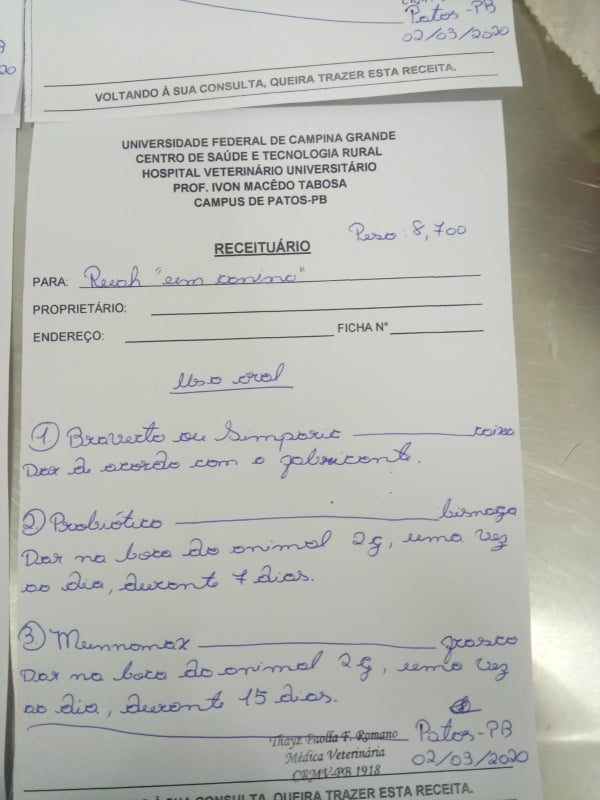 Patos-PB
02/03/2020
VOLTANDO À SUA CONSULTA, QUEIRA TRAZER ESTA RECEITA.
UNIVERSIDADE FEDERAL DE CAMPINA GRANDE
CENTRO DE SAÚDE E TECNOLOGIA RURAL
HOSPITAL VETERINÁRIO UNIVERSITÁRIO
PROF. IVON MACÊDO TABOSA
CAMPUS DE PATOS-PB
Peso: 8,700
RECEITUÁRIO
PARA: "um canino"
PROPRIETÁRIO:
ENDEREÇO: FICHA N°
Uso oral
1) Bravecto ou Simparic caixa
Dar de acordo com o fabricante.
2) Probiótico bisnaga
Dar na boca do animal 2g, uma vez
ao dia, durante 7 dias.
3) frasco
Dar na boca do animal 2g, uma vez
ao dia, durante 15 dias.
Thayz Paolla F. Romano
Médica Veterinária
CRMV-PB 1918
Patos-PB
02/03/2020
À SUA CONSULTA, QUEIRA TRAZER ESTA RECEITA.